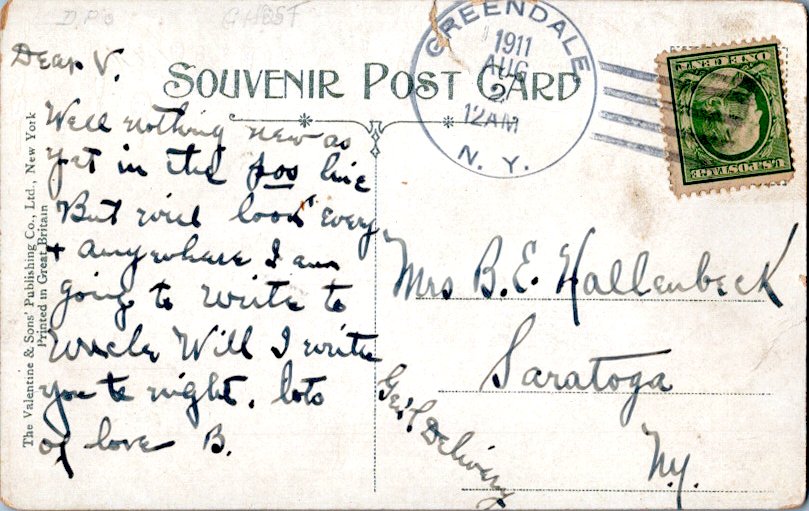 D.P.O. GHEST
GREENDALE
1911
AUG
12AM
N. Y.
ONE CENT
U.S. POSTAGE
SOUVENIR POST CARD
Dear V.
Well nothing new as
yet in the pos line
But will look every
+ anywhere I am
going to write to
Uncle Will I write
you to night. lots
of love B.
Mrs B. E. Hallenbeck
Saratoga
Gen'l Delivery
N.y.
The Valentine & Sons' Publishing Co., Ltd., New York
Printed in Great Britain